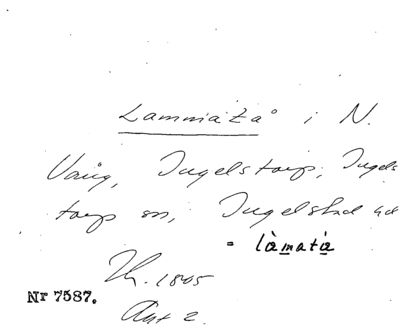 Lammatå i N.
Vång, Ingelstorp, Ingels
torp sn, Ingelstad hd
= làmata
Nr 7587.
1805
Akt 2.